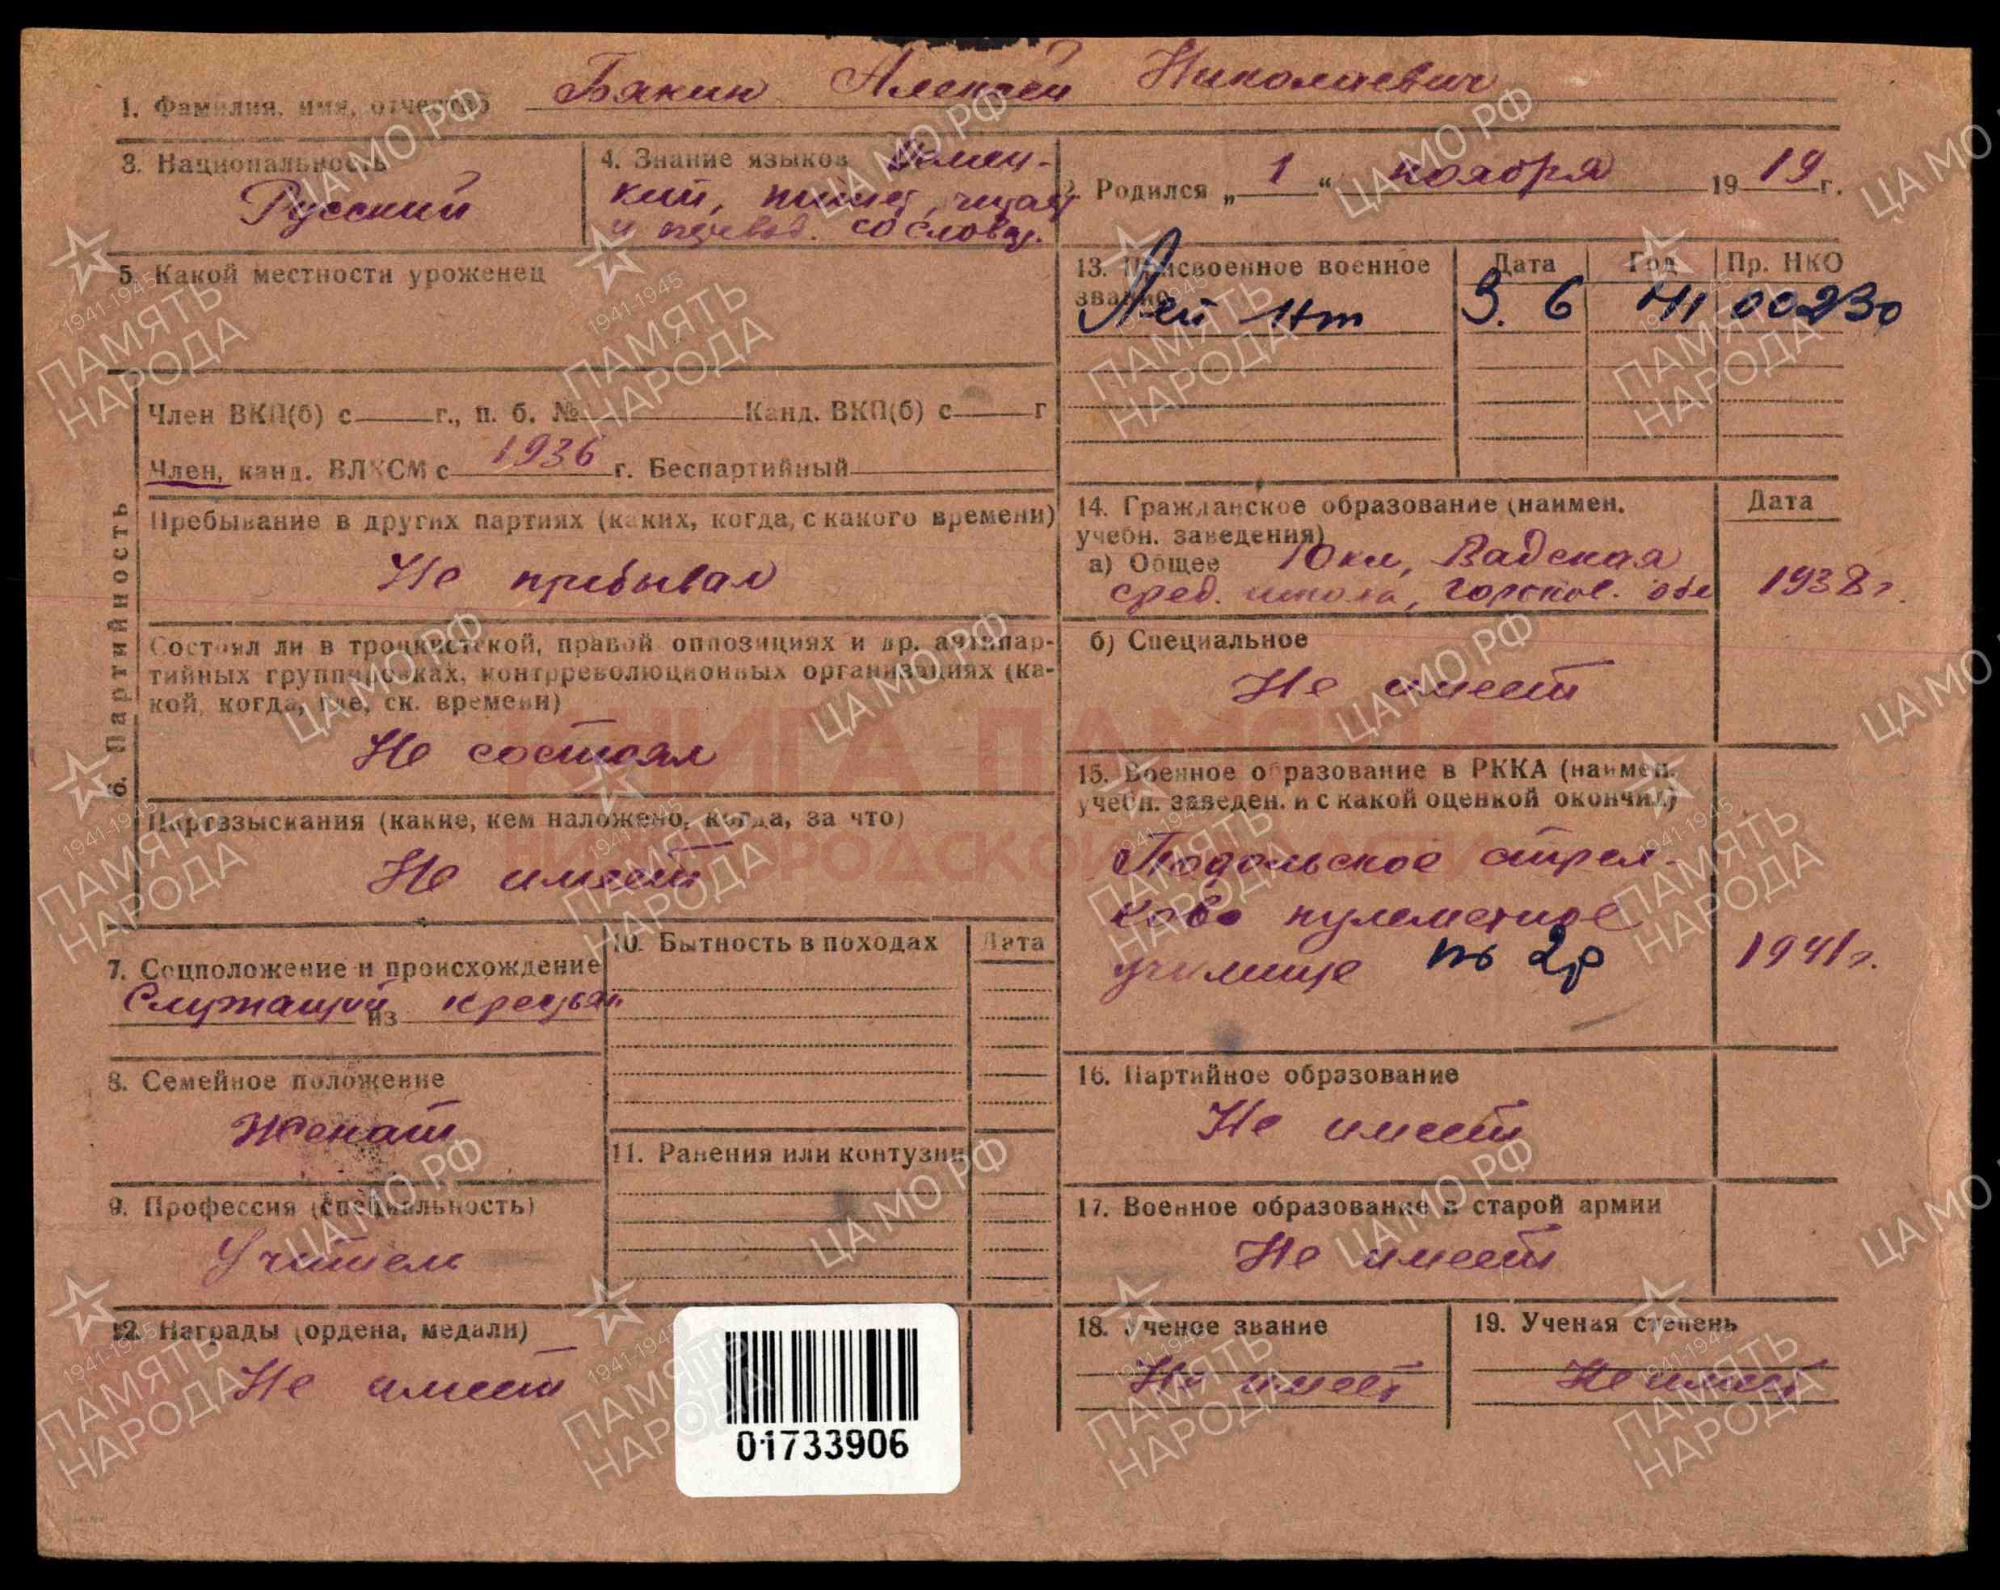 1. Фамилия, имя, отчество Бякин Алексей Николаевич
3. Национальность
Русский
4. Знание языков Немец-
кий, пишет, читает
и перевод. со словар.
2. Родился „ 1 “ ноября 19 19 г.
5. Какой местности уроженец
13. Присвоенное военное звание
Дата Год Пр. НКО
Лей нт 3. 6 41 00230
6. Партийность
Член ВКП(б) с г., п. б. № Канд. ВКП(б) с г
Член, канд. ВЛКСМ с 1936 г. Беспартийный
Пребывание в других партиях (каких, когда, с какого времени)
Не пребывал
Состоял ли в троцкистской, правой оппозициях и др. антипар-
тийных группировках, контрреволюционных организациях (ка-
кой, когда, где, ск. времени)
Не состоял
Партвзыскания (какие, кем наложено, когда, за что)
Не имеет
14. Гражданское образование (наимен.
учебн. заведения)
Дата
а) Общее 10 кл, Вадская
сред. школа, Горьков. обл
1938 г.
б) Специальное
Не имеет
15. Военное образование в РККА (наимен.
учебн. заведен. и с какой оценкой окончил)
Подольское стрел-
ково пулеметное
училище по 2р
1941 г.
7. Соцположение и происхождение
Служащий из крестьян
8. Семейное положение
Женат
9. Профессия (специальность)
Учитель
10. Бытность в походах Дата
11. Ранения или контузии
12. Награды (ордена, медали)
Не имеет
16. Партийное образование
Не имеет
17. Военное образование в старой армии
Не имеет
18. Ученое звание
Не имеет
19. Ученая степень
Не имеет
01733906
КНИГА ПАМЯТИ
НИЖЕГОРОДСКОЙ ОБЛАСТИ
ЦА МО РФ
1941-1945
ПАМЯТЬ
НАРОДА